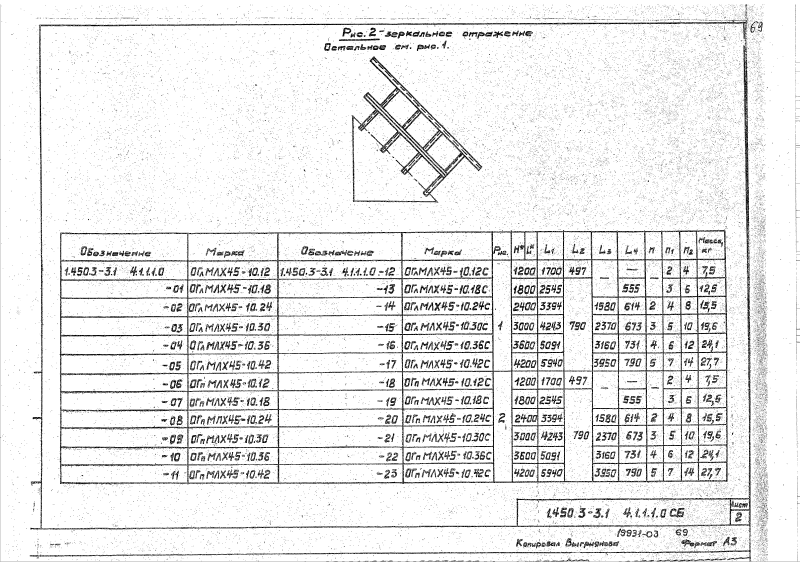 69
Рис. 2 - зеркальное отражение
Остальное см. рис. 1.
Обозначение Марка Обозначение Марка Рис. H* L* L1 L2 L3 L4 n n1 n2 Масса, кг
1.450.3-3.1 4.1.1.1.0 ОГл МЛХ45-10.12 1.450.3-3.1 4.1.1.1.0 -12 ОГл МЛХ45-10.12С 1 1200 1700 497 — — 2 4 7,5
-01 ОГл МЛХ45-10.18 -13 ОГл МЛХ45-10.18С 1800 2545 790 555 3 6 12,5
-02 ОГл МЛХ45-10.24 -14 ОГл МЛХ45-10.24С 2400 3394 1580 614 2 4 8 15,5
-03 ОГл МЛХ45-10.30 -15 ОГл МЛХ45-10.30С 3000 4243 2370 673 3 5 10 19,6
-04 ОГл МЛХ45-10.36 -16 ОГл МЛХ45-10.36С 3600 5091 3160 731 4 6 12 24,1
-05 ОГл МЛХ45-10.42 -17 ОГл МЛХ45-10.42С 4200 5940 3950 790 5 7 14 27,7
-06 ОГп МЛХ45-10.12 -18 ОГп МЛХ45-10.12С 2 1200 1700 497 — — 2 4 7,5
-07 ОГп МЛХ45-10.18 -19 ОГп МЛХ45-10.18С 1800 2545 790 555 3 6 12,5
-08 ОГп МЛХ45-10.24 -20 ОГп МЛХ45-10.24С 2400 3394 1580 614 2 4 8 15,5
-09 ОГп МЛХ45-10.30 -21 ОГп МЛХ45-10.30С 3000 4243 2370 673 3 5 10 19,6
-10 ОГп МЛХ45-10.36 -22 ОГп МЛХ45-10.36С 3600 5091 3160 731 4 6 12 24,1
-11 ОГп МЛХ45-10.42 -23 ОГп МЛХ45-10.42С 4200 5940 3950 790 5 7 14 27,7
1.450.3-3.1 4.1.1.1.0 СБ Лист 2
19931-03 69
Копировал Выгриянова Формат А3